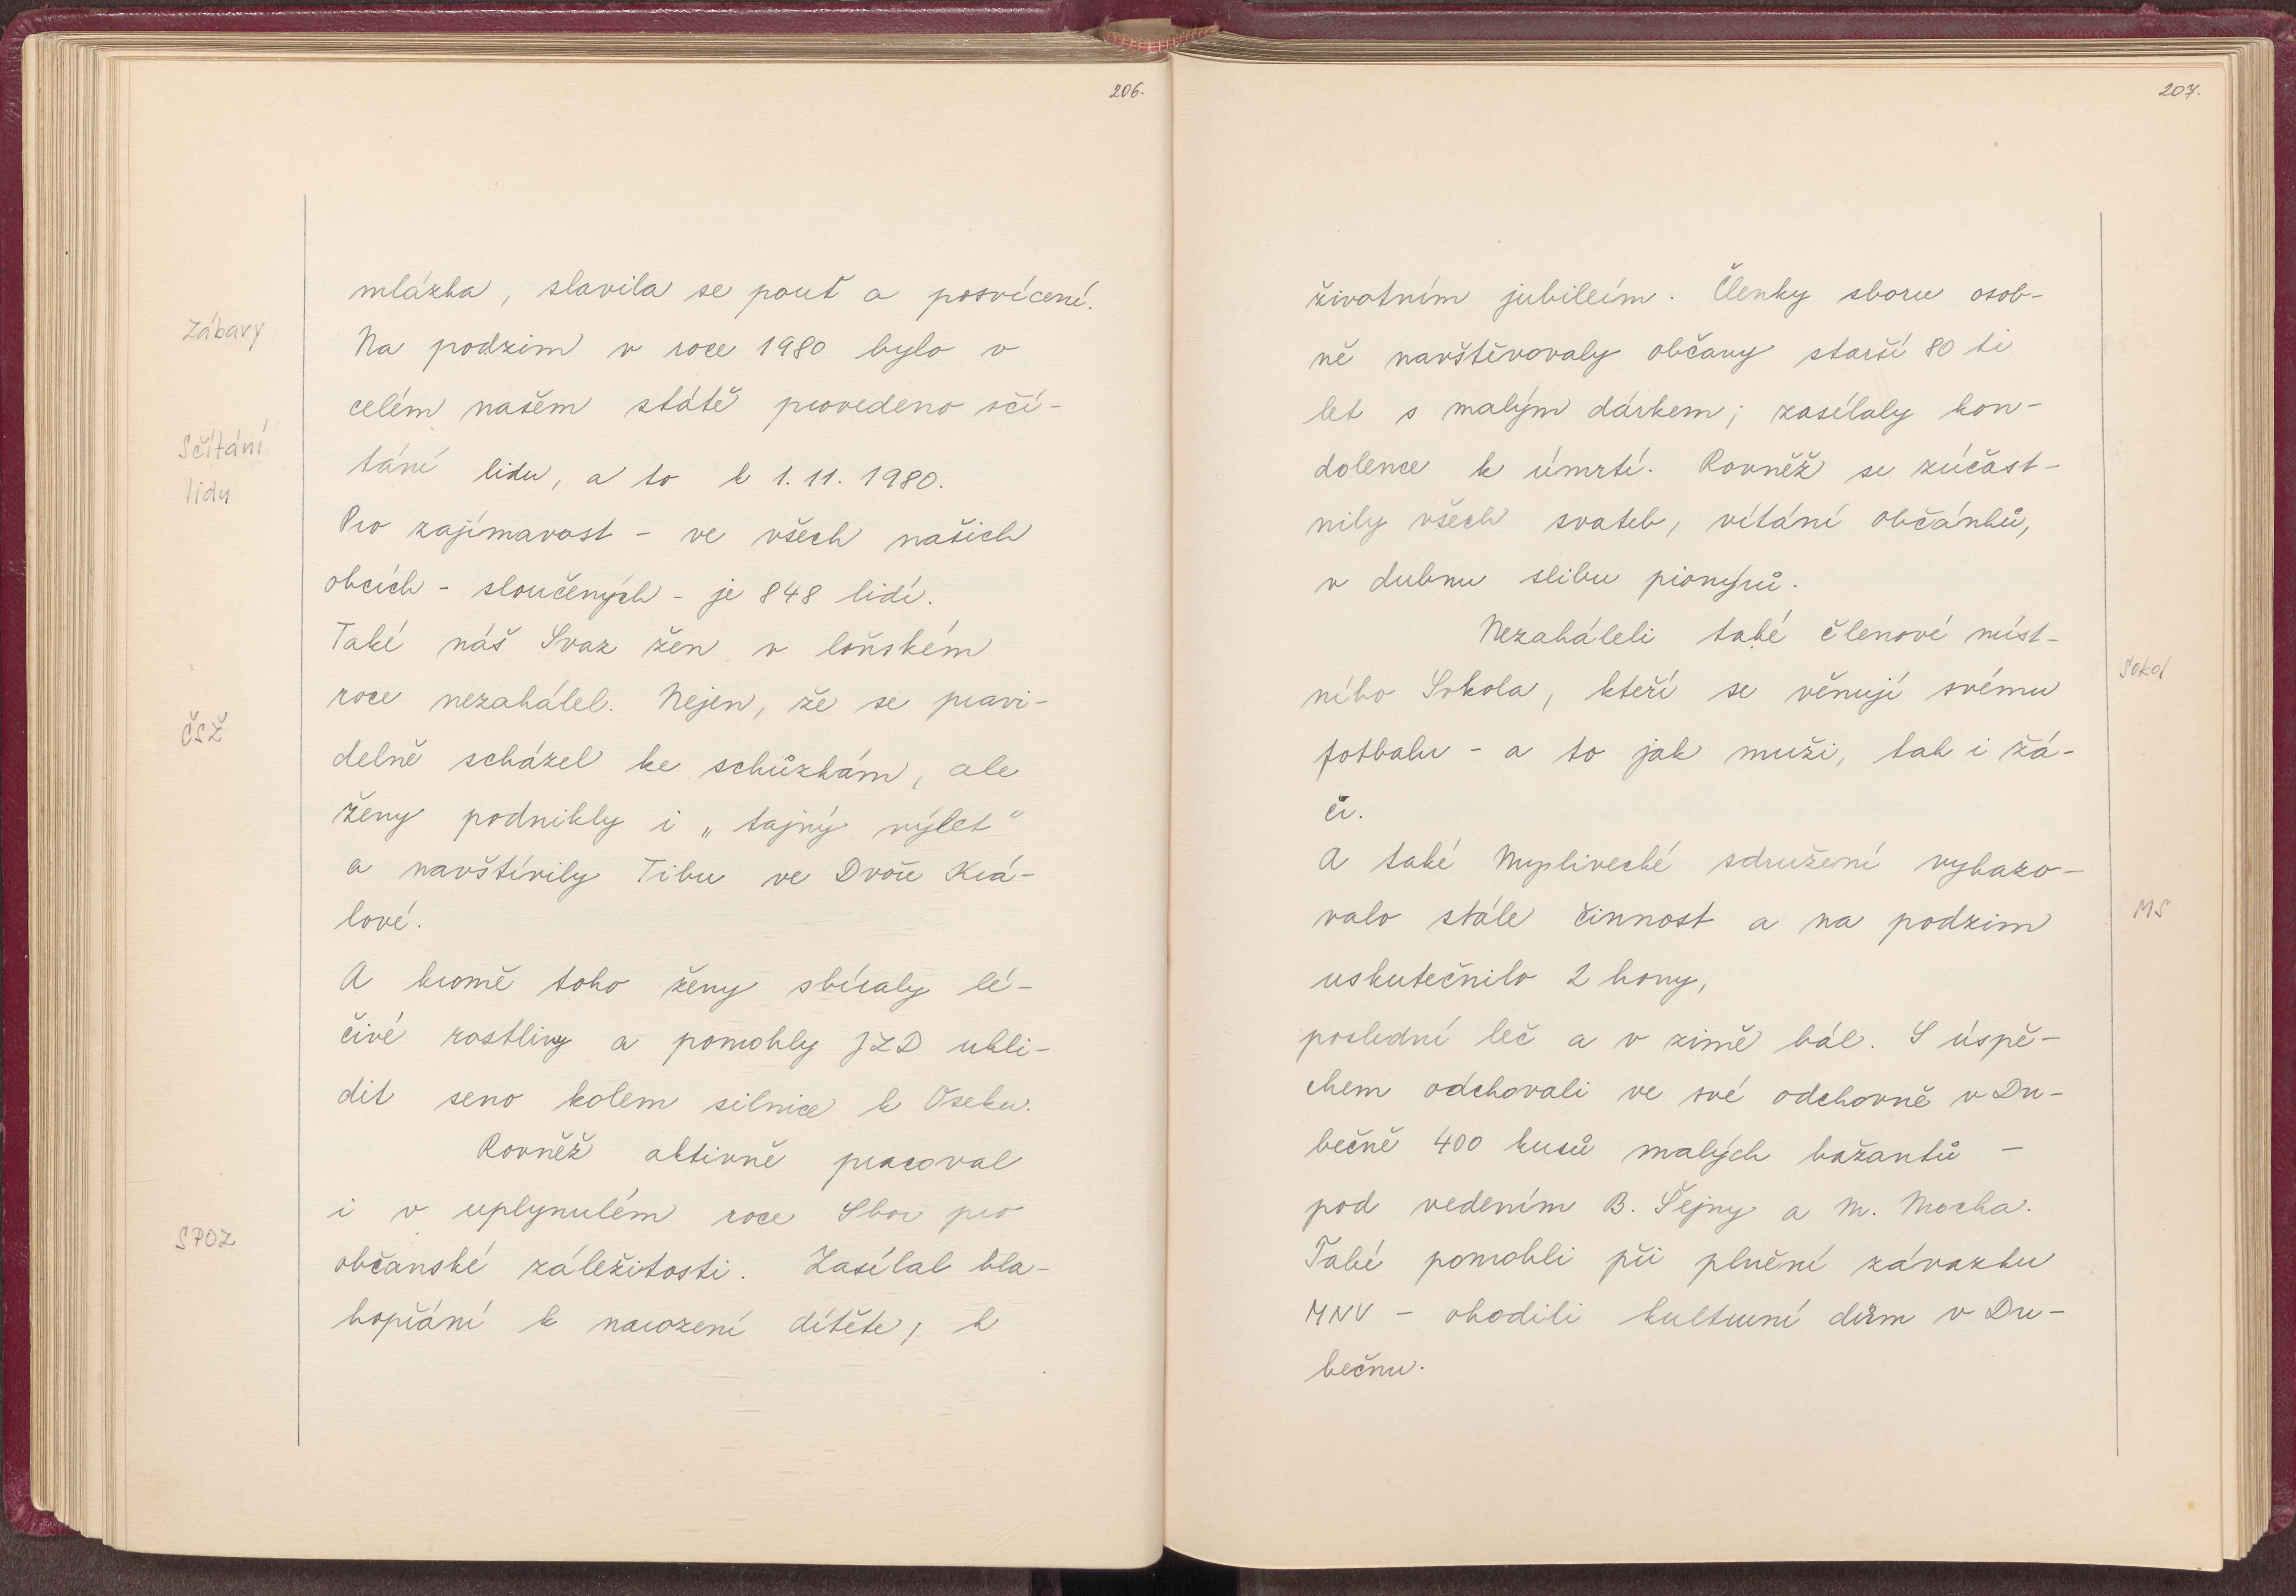 206.
mlázka, slavila se pouť a posvícení.
Zábavy
Na podzim v roce 1980 bylo v
celém našem státě provedeno sčí-
Sčítání
lidu
tání lidu, a to k 1. 11. 1980.
Pro zajímavost - ve všech našich
obcích - sloučených - je 848 lidí.
Také náš Svaz žen v loňském
roce nezahálel. Nejen, že se pravi-
ČSŽ
delně scházel ke schůzkám, ale
ženy podnikly i „tajný výlet"
a navštívily Tibu ve Dvoře Krá-
lové.
A kromě toho ženy sbíraly lé-
čivé rostliny a pomohly JZD ukli-
dit seno kolem silnice k Oseku.
Rovněž aktivně pracoval
i v uplynulém roce Sbor pro
SPOZ
občanské záležitosti. Zasílal bla-
hopřání k narození dítěte, k
207.
životním jubileím. Členky sboru osob-
ně navštěvovaly občany starší 80 ti
let s malým dárkem; zasílaly kon-
dolence k úmrtí. Rovněž se zúčast-
nily všech svateb, vítání občánků,
v dubnu slibu pionýrů.
Nezaháleli také členové míst-
Sokol
ního Sokola, kteří se věnují svému
fotbalu - a to jak muži, tak i žá-
či.
A také Myslivecké sdružení vykazo-
MS
valo stále činnost a na podzim
uskutečnilo 2 hony,
poslední leč a v zimě bál. S úspě-
chem odchovali ve své odchovně v Du-
bečně 400 kusů malých bažantů -
pod vedením B. Šejny a M. Mocha.
Také pomohli při plnění závazku
MNV - obodili kulturní dům v Du-
bečnu.